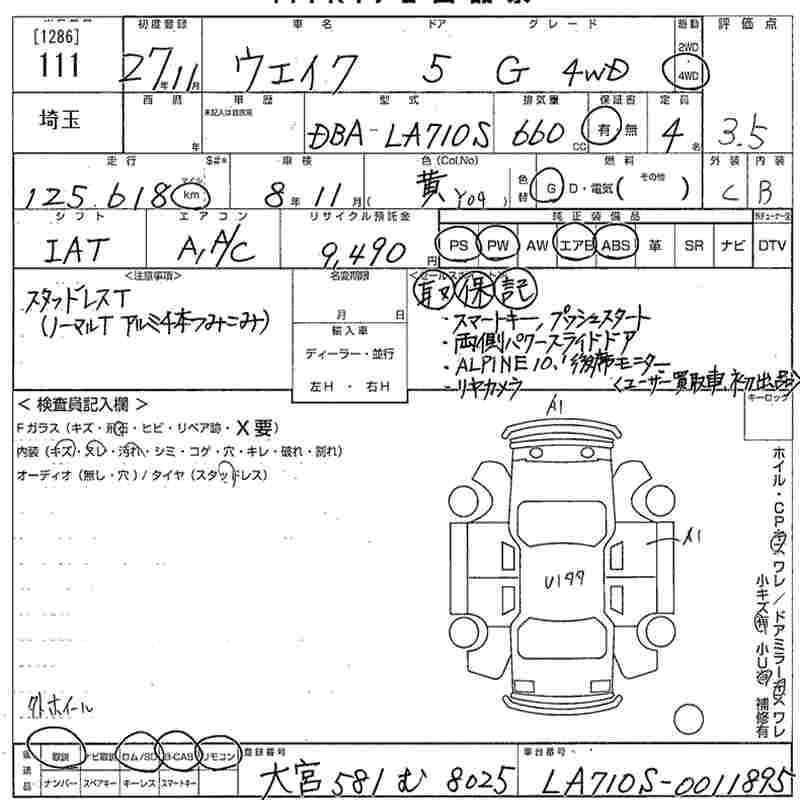 [1286]
111
埼玉
初度登録 車名 ドア グレード 駆動 評価点
27年 11月 ウェイク 5 G 4WD 2WD 4WD
西暦 車歴 型式 排気量 保証書 定員
未記入は自家用
年 DBA-LA710S 660 CC 有・無 4名 3.5
走行 車検 色(Col.No) 燃料 外装 内装
125,618 マイル km 8年 11月 ( 黄 Y09 ) 色替 G D・電気( その他 ) C B
シフト エアコン リサイクル預託金 純正装備品
IAT A,A/C 9,490円 PS PW AW エアB ABS 革 SR ナビ DTV
<注意事項> 名変期限
スタッドレスT
(ノーマルT アルミ4本つみこみ)
月 日
輸入車
ディーラー・並行
左H ・ 右H
取 保 記
・スマートキー、プッシュスタート
・両側パワースライドドア
・ALPINE10、後席モニター
・リヤカメラ <ユーザー買取車、初出品>
< 検査員記入欄 > キーロック
Fガラス(キズ・飛石・ヒビ・リペア跡・X要)
内装(キズ・スレ・汚れ・シミ・コゲ・穴・キレ・破れ・割れ)
オーディオ(無し・穴)/タイヤ(スタッドレス)
A1
A1
U199
ホイル・CPキズ ワレ/ドアミラーキズ ワレ
小キズ有 小U有 補修有
外ホイール
後送品 取説 ナビ取説 ロム/SD B-CAS リモコン 登録番号 車台番号
ナンバー スペアキー キーレス スマートキー 大宮 581 む 8025 LA710S-0011895